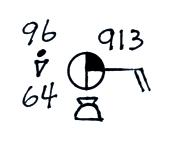 96
913
64